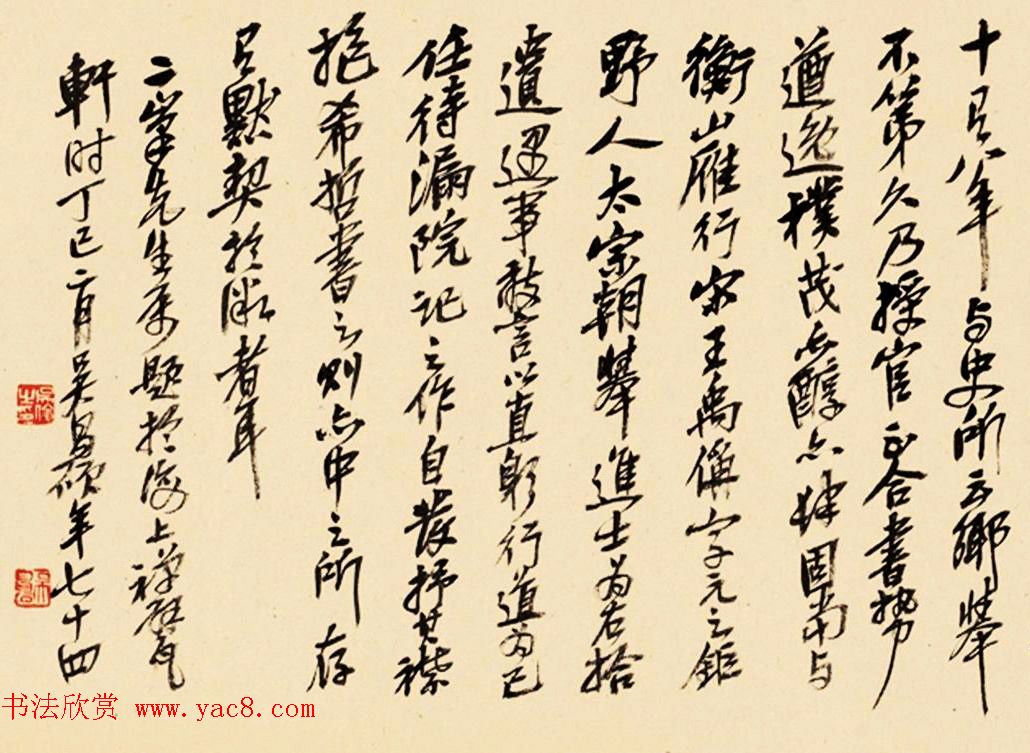 十有八年与史所云鄉舉
不第久乃授官正合書勢
遒逸樸茂亦醇亦肆固當与
衡山雁行宋王禹偁字元之鉅
野人太宗朝舉進士为右拾
遺遇事敢言以直躬行道为己
任待漏院记之作自發抒其襟
抱希哲書之则亦中之所存
有默契於微者耳
二峯先生属題於海上禪甓
軒时丁巳二月吴昌碩年七十四
书法欣赏 www.yac8.com